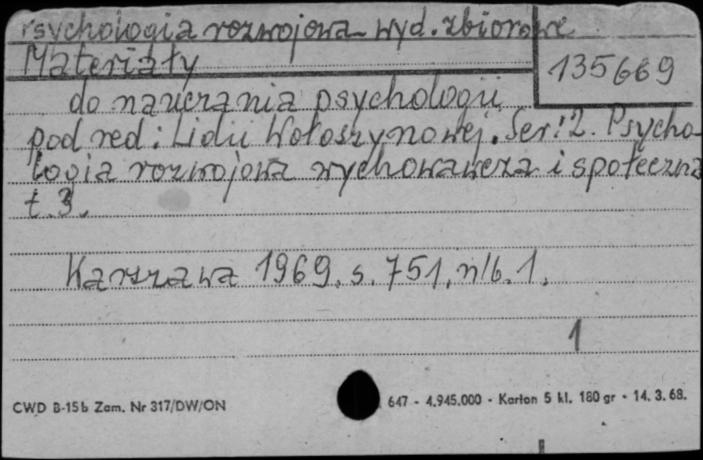 Psychologia rozwojowa - wyd. zbiorowe
Materiały
135669
do nauczania psychologii
pod red: Lidii Wołoszynowej. Ser: 2. Psycho-
logia rozwojowa wychowawcza i społeczna
t. 3.
Warszawa 1969. s. 751, nlb. 1.
1
CWD B-15b Zam. Nr 317/DW/ON
647 - 4.945.000 - Karton 5 kl. 180 gr - 14. 3. 68.